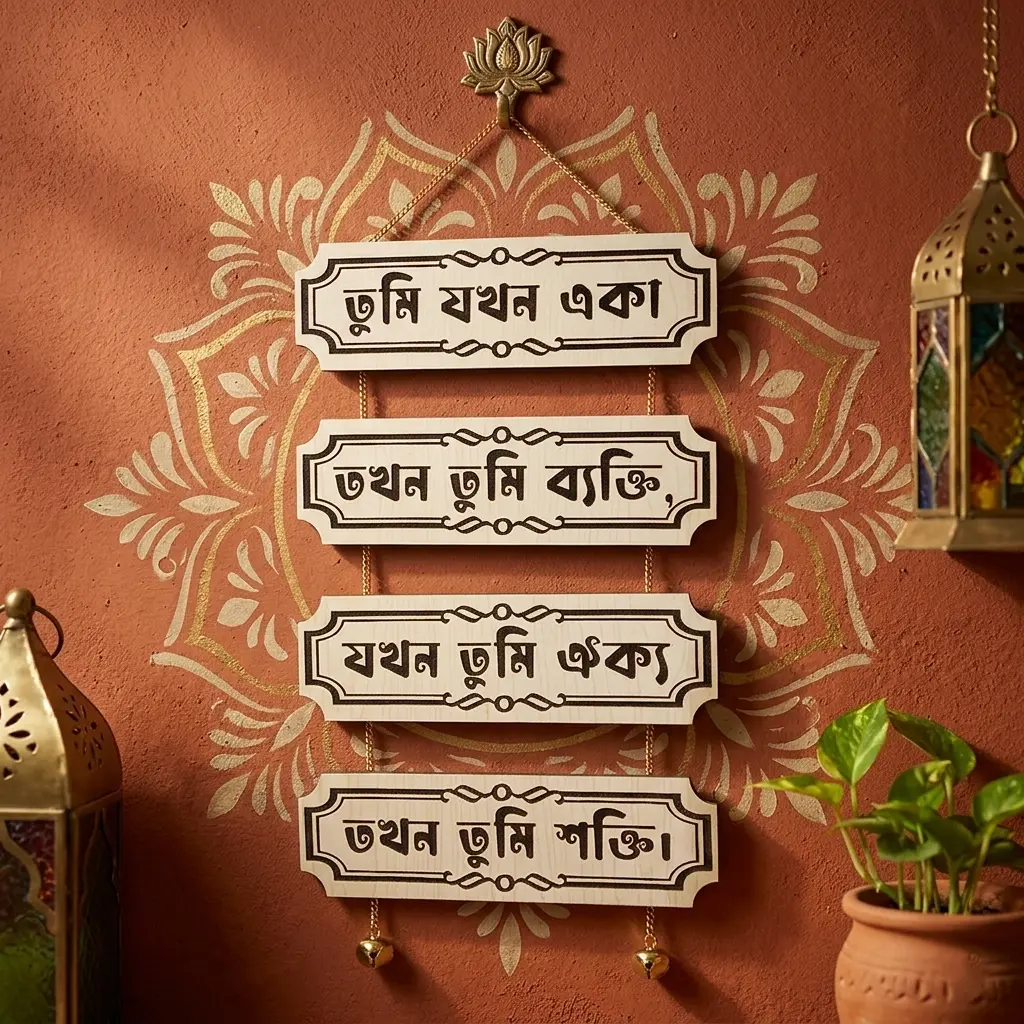 তুমি যখন একা
তখন তুমি ব্যক্তি,
যখন তুমি ঐক্য
তখন তুমি শক্তি।